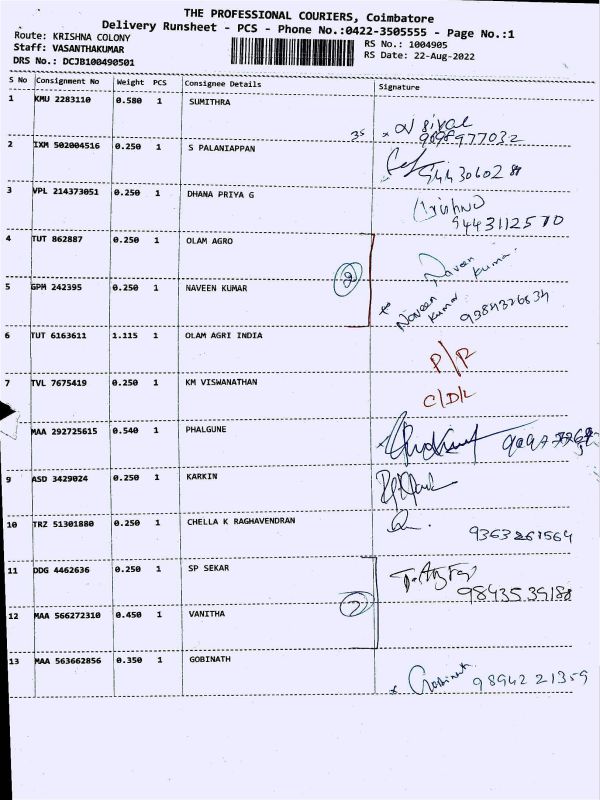 THE PROFESSIONAL COURIERS, Coimbatore
Delivery Runsheet - PCS - Phone No.:0422-3505555 - Page No.:1
Route: KRISHNA COLONY RS No.: 1004905
Staff: VASANTHAKUMAR RS Date: 22-Aug-2022
DRS No.: DCJB100490501
S No Consignment No Weight PCS Consignee Details Signature
1 KMU 2283110 0.580 1 SUMITHRA
2 IXM 502004516 0.250 1 S PALANIAPPAN
3 VPL 214373051 0.250 1 DHANA PRIYA G
9443112570
4 TUT 862887 0.250 1 OLAM AGRO Naveen Kumar
2
5 GPM 242395 0.250 1 NAVEEN KUMAR Naveen Kumar
6 TUT 6163611 1.115 1 OLAM AGRI INDIA P/R
7 TVL 7675419 0.250 1 KM VISWANATHAN C/D/L
MAA 292725615 0.540 1 PHALGUNE
9 ASD 3429024 0.250 1 KARKIN
10 TRZ 51301880 0.250 1 CHELLA K RAGHAVENDRAN
9363261564
11 DDG 4462636 0.250 1 SP SEKAR
12 MAA 566272310 0.450 1 VANITHA
13 MAA 563662856 0.350 1 GOBINATH Gobinath 9894221359